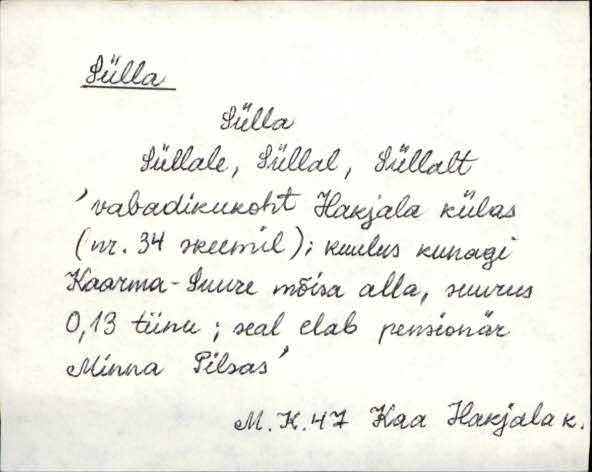 Sülla
Sülla
Süllale, Süllal, Süllalt
'vabadikukoht Hakjala külas
(nr. 34 skeemil); kuulus kunagi
Kaarma-Suure mõisa alla, suurus
0,13 tiinu; seal elab pensionär
Minna Pilsas'
M.K.47 Kaa Hakjala k.